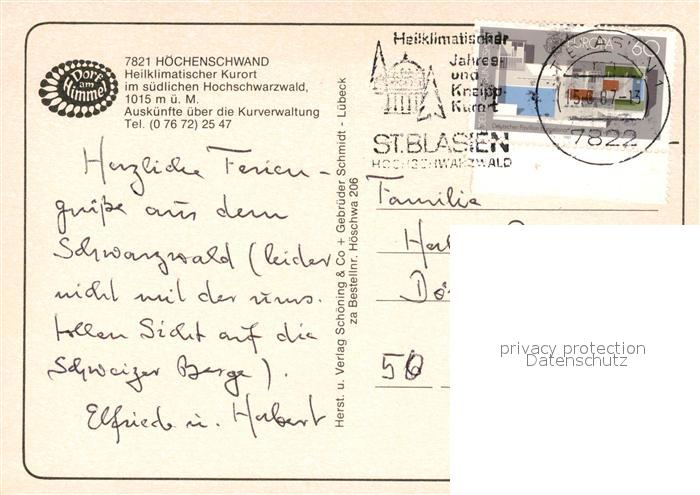 Dorf
am
Himmel
7821 HÖCHENSCHWAND
Heilklimatischer Kurort
im südlichen Hochschwarzwald,
1015 m ü. M.
Auskünfte über die Kurverwaltung
Tel. (0 76 72) 25 47
Herzliche Ferien-
grüße aus dem
Schwarzwald (leider
nicht mit der
tollen Sicht auf die
Schweizer Berge).
Elfriede u. Herbert
Herst. u. Verlag Schöning & Co + Gebrüder Schmidt - Lübeck
za Bestellnr. Höschwa 206
Heilklimatischer
Jahres-
und
Kneipp-
Kurort
ST.BLASIEN
HOCHSCHWARZWALD
EUROPA 60
Deutscher Pavillon
7822
Familie
56
privacy protection
Datenschutz